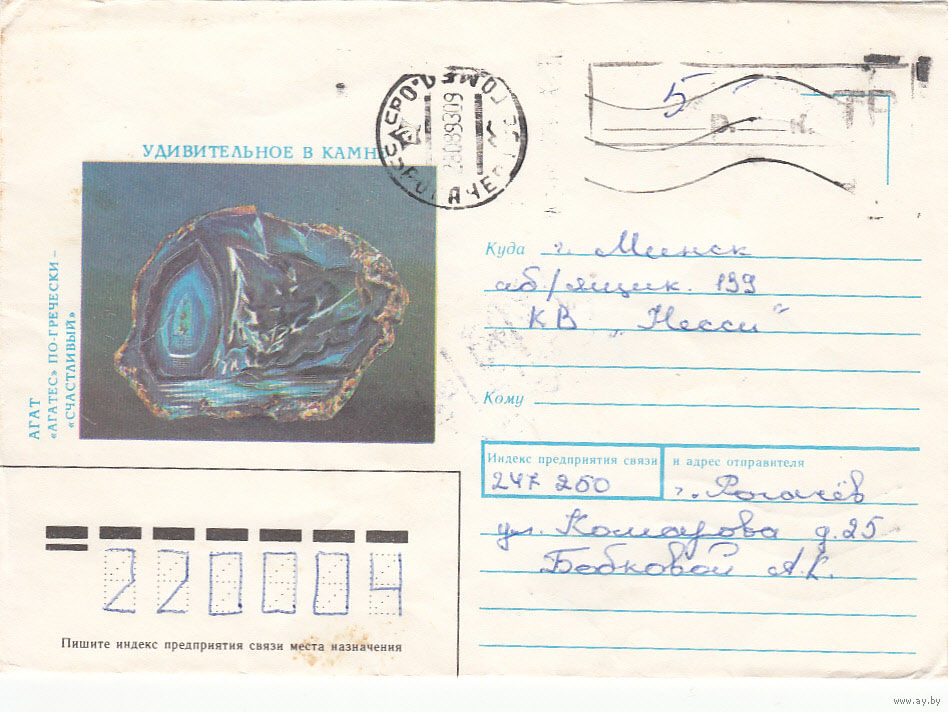 УДИВИТЕЛЬНОЕ В КАМНЕ
АГАТ
«АГАТЕС» ПО-ГРЕЧЕСКИ –
«СЧАСТЛИВЫЙ»
28089309
5
р. к.
Куда г. Минск
аб/ящик. 199
КВ „Несси“
Кому
Индекс предприятия связи
и адрес отправителя
247 250
г. Рогачёв
ул. Комарова д. 25
Бобковой А.
220004
Пишите индекс предприятия связи места назначения
www.ay.by